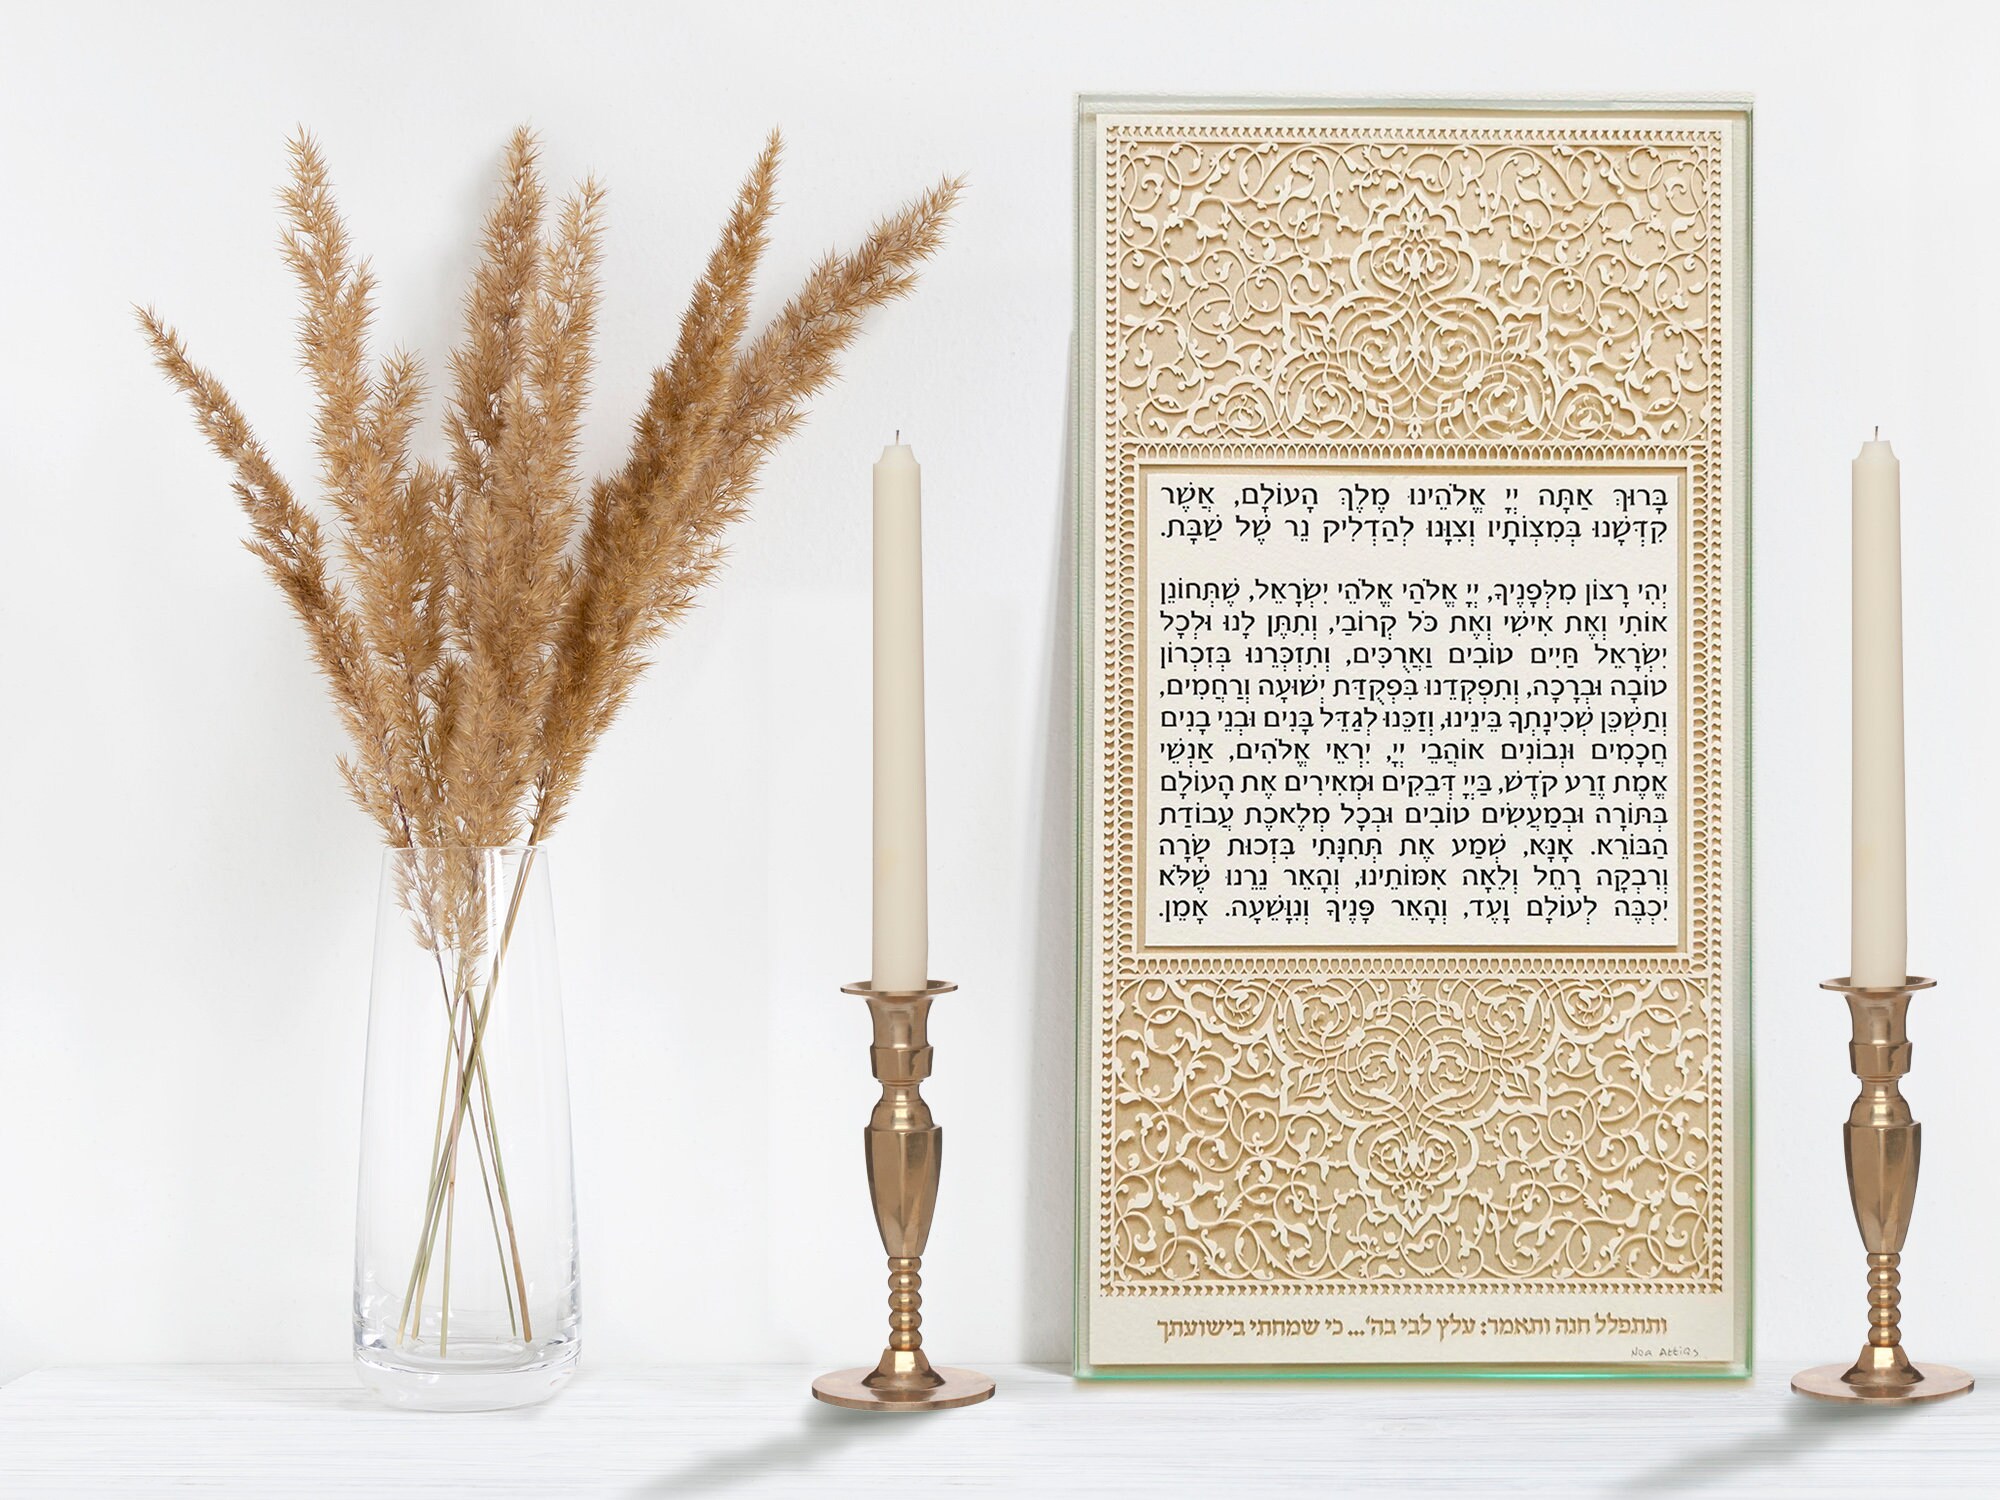 בָּרוּךְ אַתָּה יְיָ אֱלֹהֵינוּ מֶלֶךְ הָעוֹלָם, אֲשֶׁר
קִדְּשָׁנוּ בְּמִצְוֹתָיו וְצִוָּנוּ לְהַדְלִיק נֵר שֶׁל שַׁבָּת.
יְהִי רָצוֹן מִלְּפָנֶיךָ, יְיָ אֱלֹהַי אֱלֹהֵי יִשְׂרָאֵל, שֶׁתְּחוֹנֵן
אוֹתִי וְאֶת אִישִׁי וְאֶת כֹּל קְרוֹבַי, וְתִתֶּן לָנוּ וּלְכָל
יִשְׂרָאֵל חַיִּים טוֹבִים וַאֲרֻכִּים, וְתִזְכְּרֵנוּ בְּזִכְרוֹן
טוֹבָה וּבְרָכָה, וְתִפְקְדֵנוּ בִּפְקֻדַּת יְשׁוּעָה וְרַחֲמִים,
וְתַשְׁכֵּן שְׁכִינָתְךָ בֵּינֵינוּ, וְזַכֵּנוּ לְגַדֵּל בָּנִים וּבְנֵי בָנִים
חֲכָמִים וּנְבוֹנִים אוֹהֲבֵי יְיָ, יִרְאֵי אֱלֹהִים, אַנְשֵׁי
אֱמֶת זֶרַע קֹדֶשׁ, בַּייָ דְּבֵקִים וּמְאִירִים אֶת הָעוֹלָם
בְּתוֹרָה וּבְמַעֲשִׂים טוֹבִים וּבְכָל מְלֶאכֶת עֲבוֹדַת
הַבּוֹרֵא. אָנָּא, שְׁמַע אֶת תְּחִנָּתִי בִּזְכוּת שָׂרָה
וְרִבְקָה רָחֵל וְלֵאָה אִמּוֹתֵינוּ, וְהָאֵר נֵרֵנוּ שֶׁלֹּא
יִכְבֶּה לְעוֹלָם וָעֶד, וְהָאֵר פָּנֶיךָ וְנִוָּשֵׁעָה. אָמֵן.
ותתפלל חנה ותאמר: עלץ לבי בה'... כי שמחתי בישועתך
Noa Attias